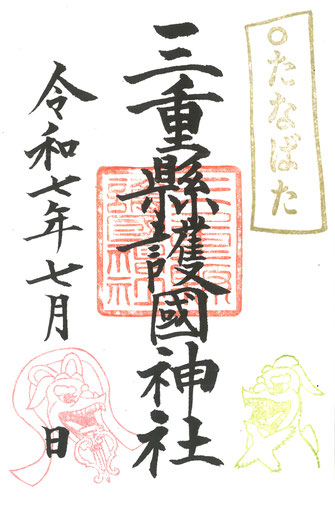 たなばた
三重縣護國神社
令和七年七月
日